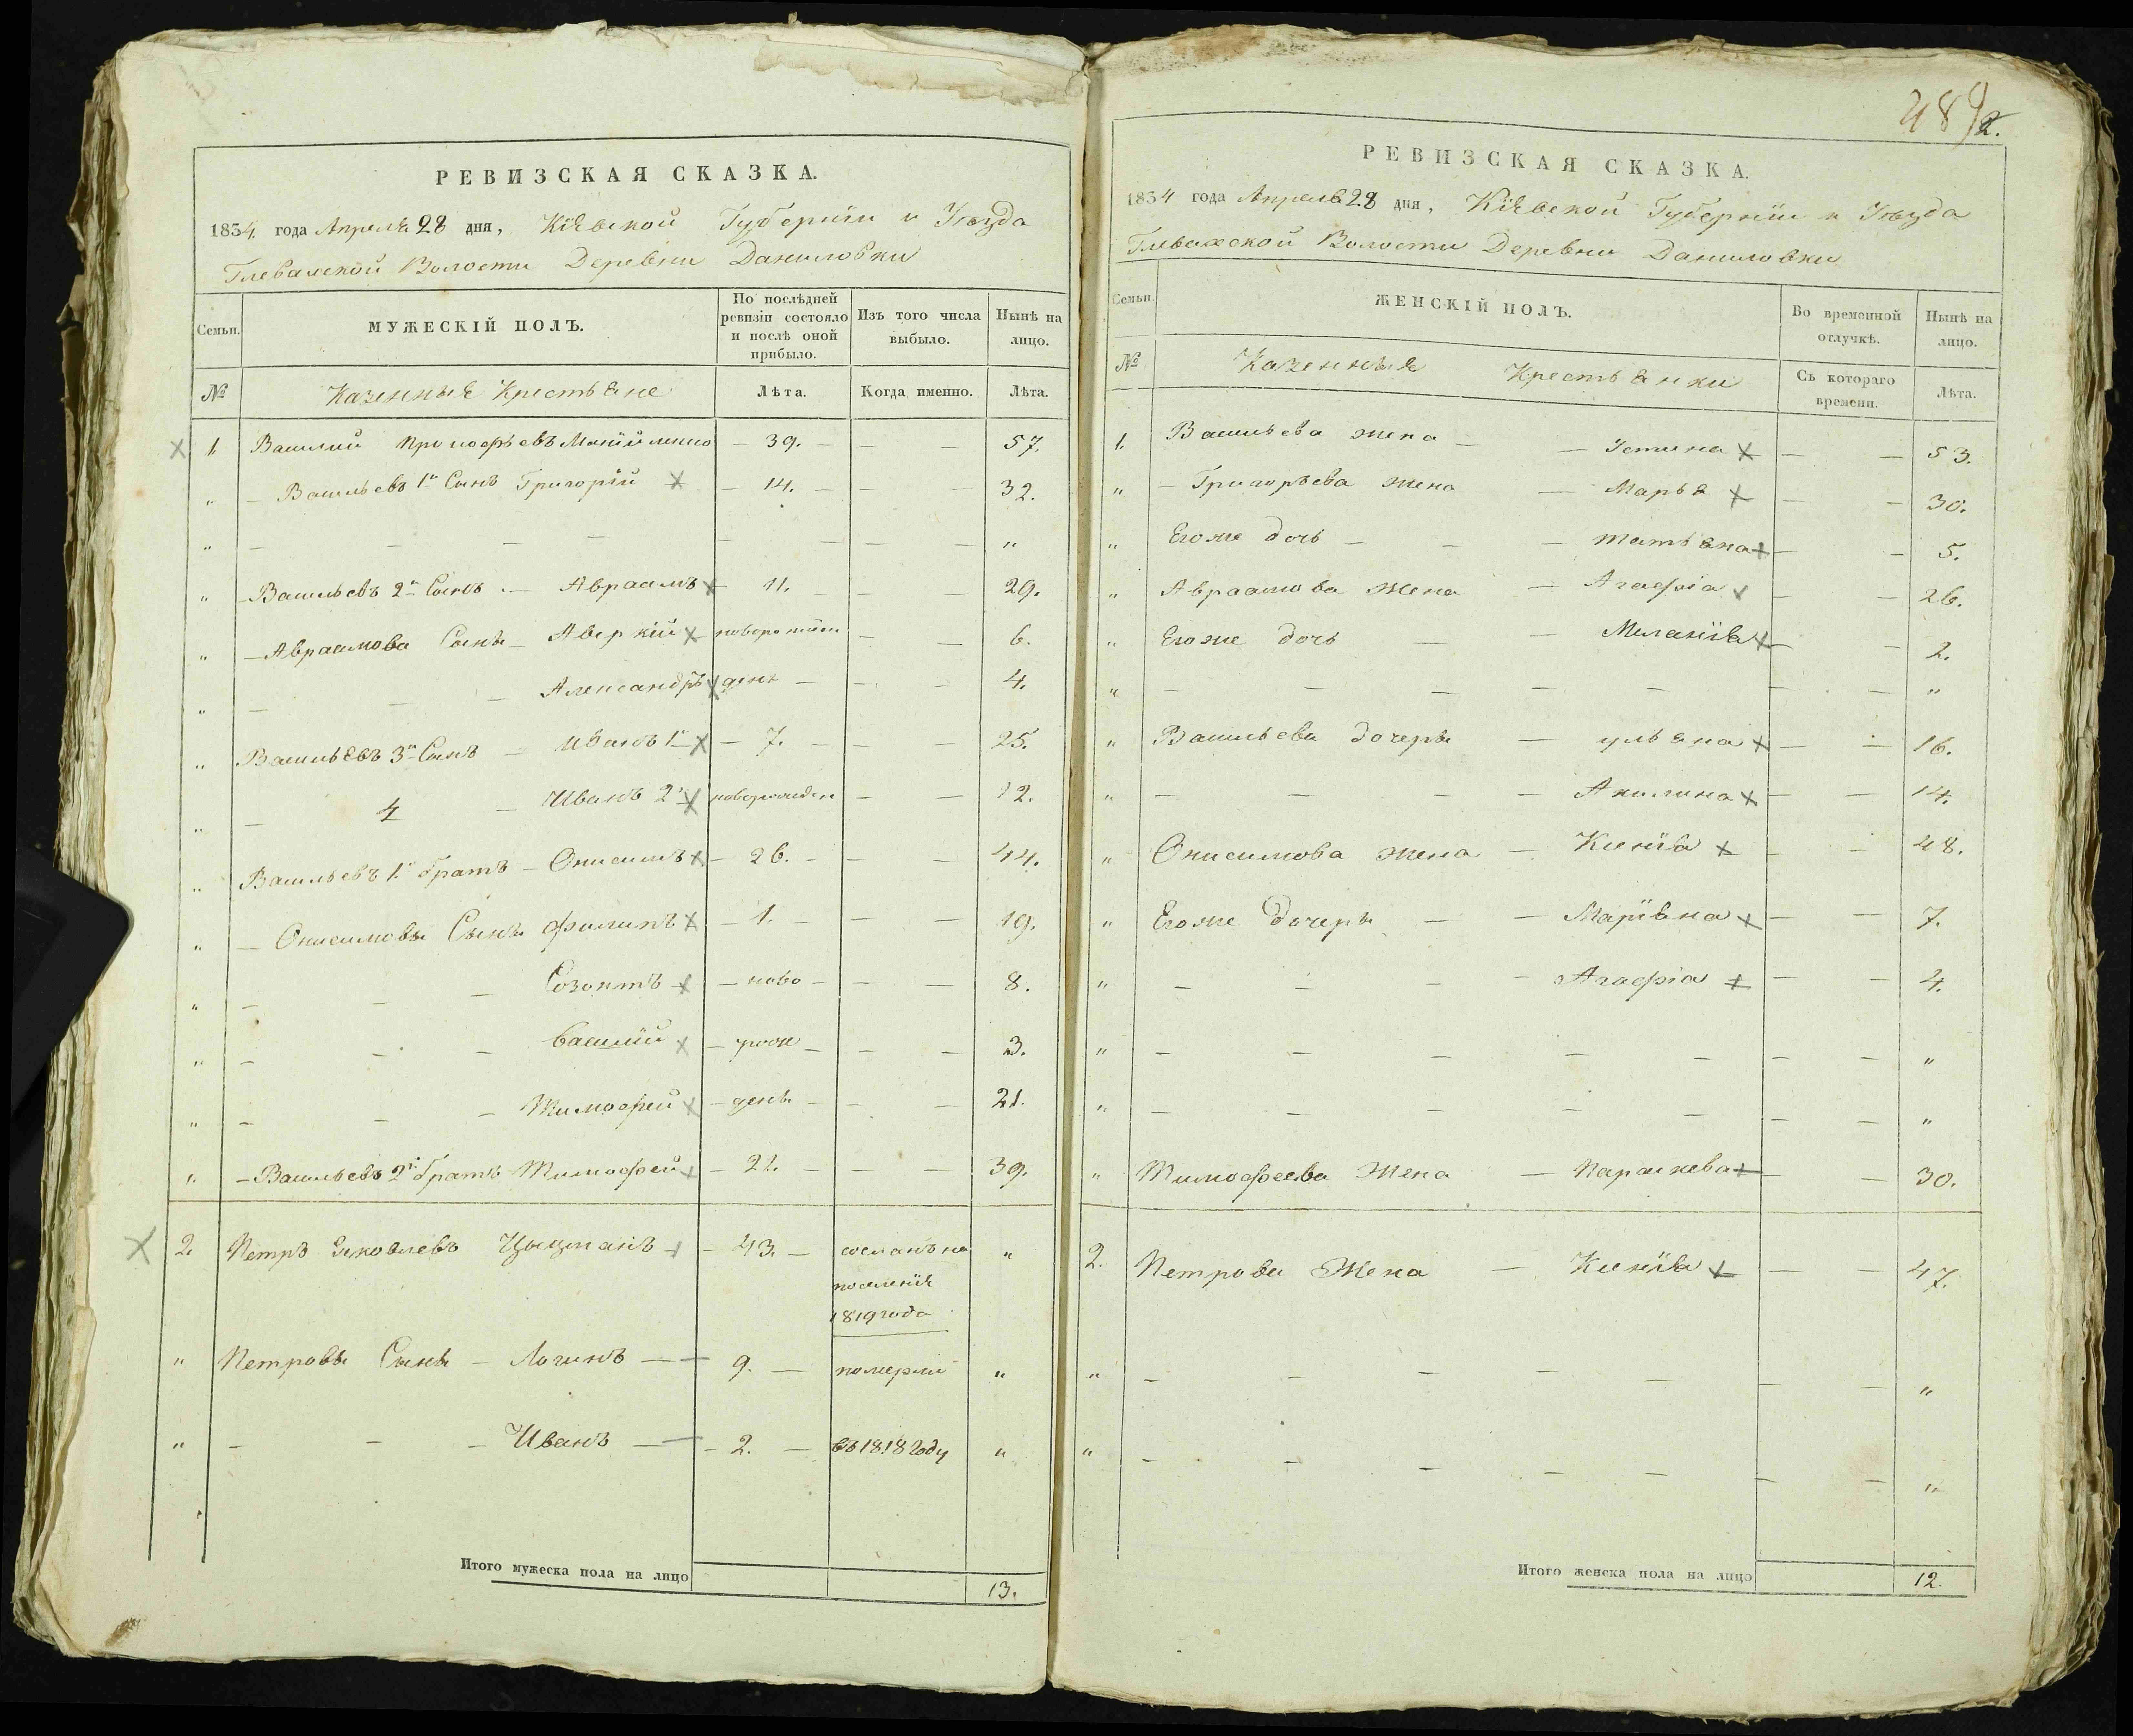 РЕВИЗСКАЯ СКАЗКА.
1834 года Апреля 28 дня, Кіевской Губерніи и Уезда
Глевахской Волости Деревни Даниловки
Семьи. МУЖЕСКІЙ ПОЛЪ. По послѣдней ревизіи состояло и послѣ оной прибыло. Изъ того числа выбыло. Нынѣ на лицо.
№ Казенные Крестьяне Лѣта. Когда именно. Лѣта.
1 Василий Прокофьевъ — 39. — — — 57.
„ — Васильевъ 1й Сынъ Григорій — 14. — — 32.
„ — — — — — — — — „
„ — Васильевъ 2й Сынъ — Авраамъ — 11. — — 29.
„ — Авраамова Сыны — Аверкій новорожден — — 6.
„ — — — Александръ ден — — — 4.
„ Васильевъ 3й Сынъ — Иванъ 1й — 7. — — — 25.
„ — 4 — Иванъ 2й новорожден — — 12.
„ Васильевъ 1й братъ — Онисимъ — 26. — — — 44.
„ — Онисимовы Сыны Филипъ — 1. — — — 19.
„ — — — Созонтъ — ново — — — 8.
„ — — — Василій — рож — — — 3.
„ — — — Тимофей — день — — — 21.
„ — Васильевъ 2й братъ Тимофей — 21. — — — 39.
2 Петръ Яковлевъ Цыцманъ — 43. — сосланъ на „
поселеніе
1819 года
„ Петровы Сыны — Логинъ — 9. — померли „
„ — — — Иванъ — 2. — въ 1818 году „
Итого мужеска пола на лицо 13.
489
2.
РЕВИЗСКАЯ СКАЗКА.
1834 года Апреля 28 дня, Кіевской Губерніи и Уезда
Глевахской Волости Деревни Даниловки
Семьи. ЖЕНСКІЙ ПОЛЪ. Во временной отлучкѣ. Нынѣ на лицо.
№ Казенные Крестьянки Съ котораго времени. Лѣта.
1. Васильева жена — — Устина — — 53.
„ — Григорьева жена — Марья — — 30.
„ Егоже дочь — — — Татьяна — — 5.
„ Авраамова Жена — Агафіа — — 26.
„ Егоже дочь — — Меланія — — 2.
„ — — — — — — — „
„ Васильева дочеры — ульяна — — 16.
„ — — — — Акилина — — 14.
„ Онисимова жена — Ксенія — — 48.
„ Егоже дочеры — — Маріяна — — 7.
„ — — — — Агафіа — — 4.
„ — — — — — — — „
„ — — — — — — — „
„ Тимофеева Жена — Параскева — 30.
2. Петрова Жена — Ксенія — — 47.
„ — — — — — — — „
„ — — — — — — — „
Итого женска пола на лицо 12.